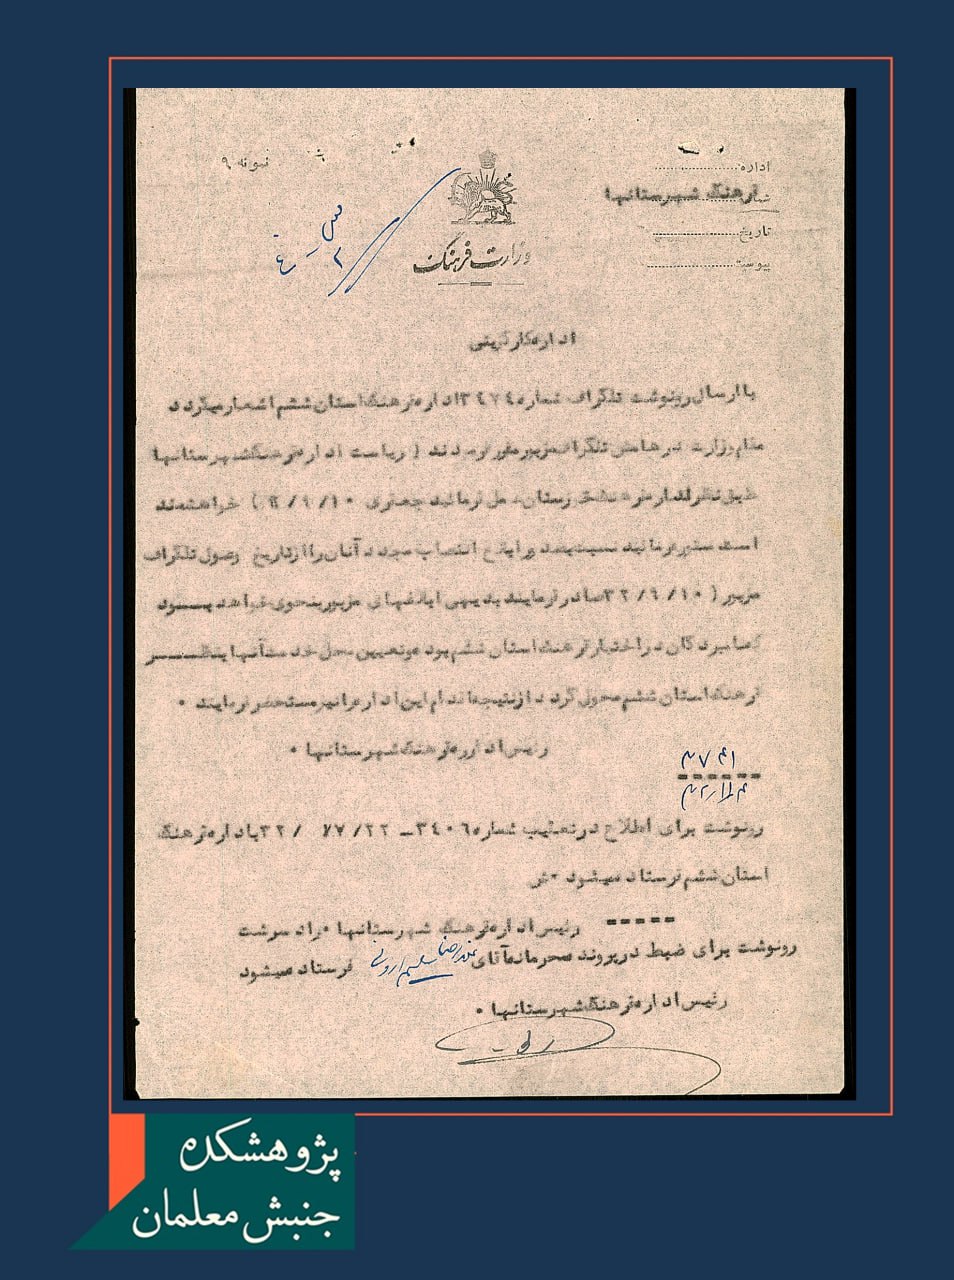 اداره
نمونه ۹
شماره فرهنگ شهرستانها
تاریخ
پیوست
وزارت فرهنگ
اداره کارگزینی
با ارسال رونوشت تلگراف شماره ۳۴۷۴ اداره فرهنگ استان ششم اشعار میگردد
مقام وزارت در هامش تلگراف مزبور مقرر فرمودند ( ریاست اداره فرهنگ شهرستانها
طبق نظر اداره فرهنگ خوزستان عمل فرمائید جعفری ) خواهشمند
است فرمائید نسبت ابلاغ انتصاب مجدد آنان را از تاریخ وصول تلگراف
مزبور ( صادر فرمایند بدیهی ابلاغهای مزبور بنحوی خواهد بود
که نامبردگان در اختیار فرهنگ استان ششم بوده و تعیین محل خدمت آنها بنظر
فرهنگ استان ششم محول گردد از نتیجه اقدام این اداره را نیز مستحضر فرمایند ۰
رئیس اداره فرهنگ شهرستانها ۰
رونوشت برای اطلاع در تعقیب شماره ۳۴۰۶ – باداره فرهنگ
استان ششم فرستاده میشود
رئیس اداره فرهنگ شهرستانها ۰ راد سرشت
رونوشت برای ضبط در پرونده محرمانه آقای فرستاده میشود
رئیس اداره فرهنگ شهرستانها ۰
پژوهشکده
جنبش معلمان